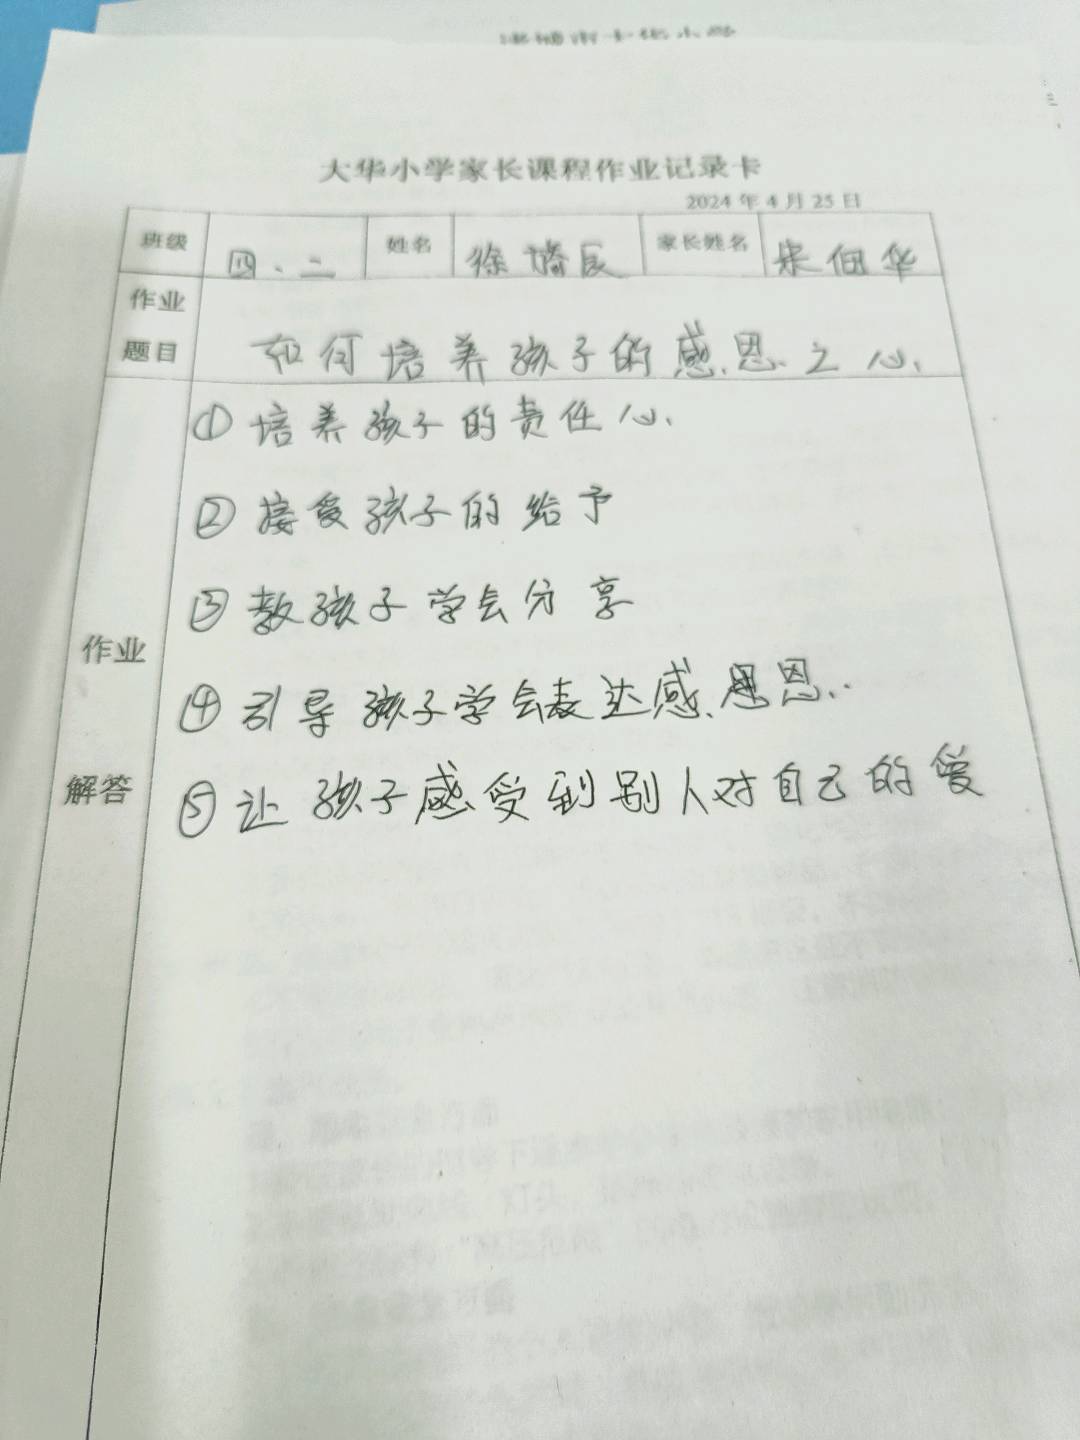 大华小学家长课程作业记录卡
2024年4月25日
班级 四、二 姓名 徐 辰 家长姓名 华
作业题目 如何培养孩子的感恩之心
作业解答
①培养孩子的责任心
②接受孩子的给予
③教孩子学会分享
④引导孩子学会表达感恩
⑤让孩子感受到别人对自己的爱